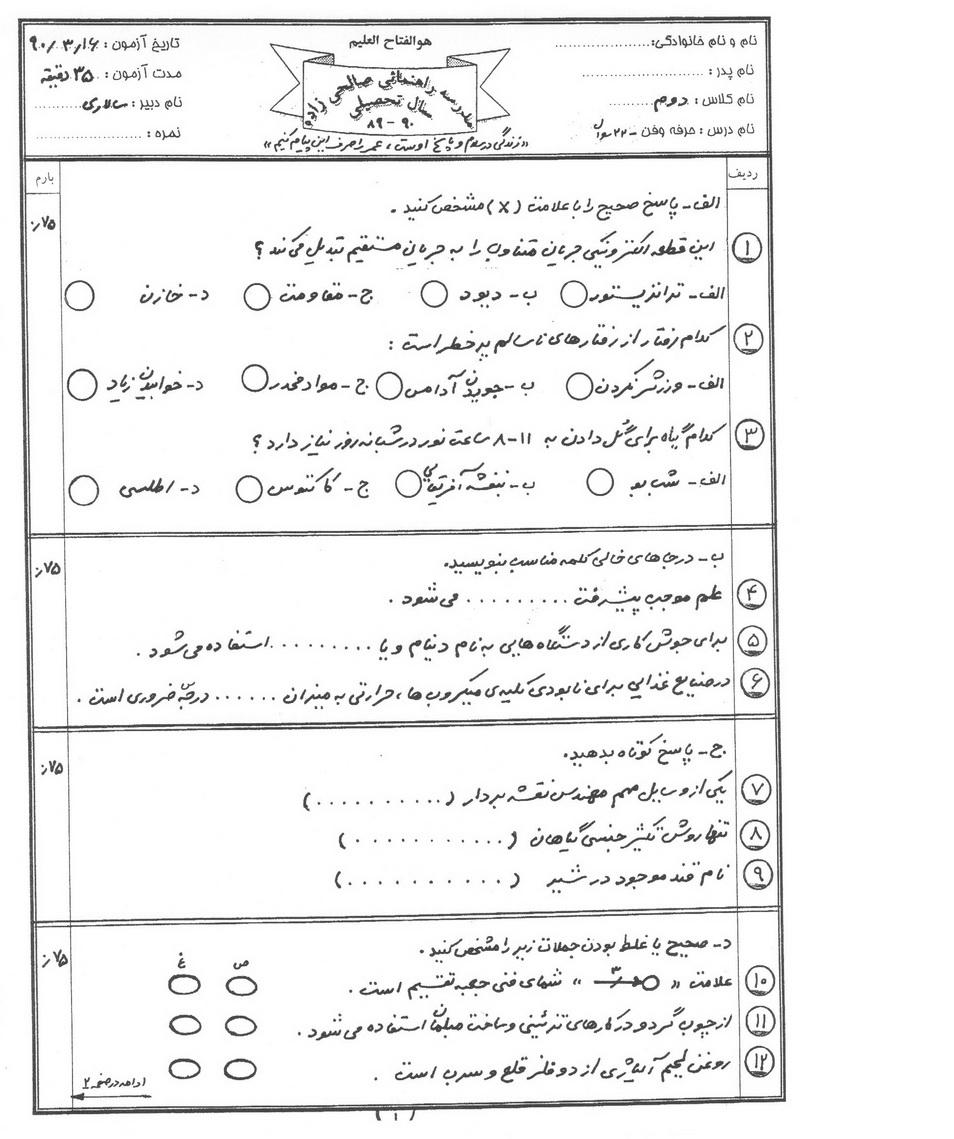 هوالفتاح العلیم
نام و نام خانوادگی:......................
نام پدر : ..........................
نام کلاس : دوم
نام درس : حرفه وفن - ۲۲ سوال
مدرسه راهنمائی صالحی زاده
سال تحصیلی
۸۹ - ۹۰
«زندگی درسلام و پاسخ اوست، عمر را صرف این پیام کنیم»
تاریخ آزمون : ۹۰/۳/۱۶
مدت آزمون : ۳۵ دقیقه
نام دبیر : سالاری
نمره : ..............
ردیف
بارم
الف - پاسخ صحیح را با علامت (X) مشخص کنید .
۷۵/.
۱ این قطعه الکترونیکی جریان متناوب را به جریان مستقیم تبدیل می کند ؟
الف - ترانزیستور ب - دیود ج - مقاومت د - خازن
۲ کدام رفتار از رفتارهای ناسالم پر خطر است :
الف - ورزش نکردن ب - جویدن آدامس ج - مواد مخدر د - خوابیدن زیاد
۳ کدام گیاه برای گُل دادن به ۱۱-۸ ساعت نور در شبانه روز نیاز دارد ؟
الف - شب بو ب - بنفشه آفریقایی ج - کاکتوس د - اطلسی
ب - درجاهای خالی کلمه مناسب بنویسید.
۷۵/.
۴ علم موجب پیشرفت ......... می شود .
۵ برای جوش کاری از دستگاه هایی به نام دینام و یا ......... استفاده می شود .
۶ درصنایع غذایی برای نابودی کلیه ی میکروب ها ، حرارتی به میزان ...... درجه ضروری است .
ج - پاسخ کوتاه بدهید.
۷۵/.
۷ یکی از وسایل مهم مهندس نقشه بردار (..........)
۸ تنها روش تکثیر جنسی گیاهان (...........)
۹ نام قند موجود در شیر (..........)
د - صحیح یا غلط بودن جملات زیر را مشخص کنید.
۷۵/.
ص غ
۱۰ علامت « ۳ » نمای فنی جعبه تقسیم است .
۱۱ از چوب گردو در کارهای تزئینی و ساخت مبلمان استفاده می شود .
۱۲ روغن لحیم آلیاژی از دو فلز قلع و سرب است .
ادامه درصفحه ۲
(۱)